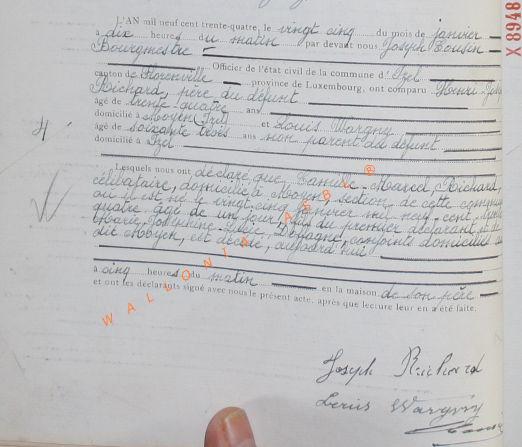 L'AN mil neuf cent trente-quatre, le vingt cinq du mois de janvier
à dix heures du matin par devant nous Joseph Cousin
Bourgmestre
Officier de l'état civil de la commune d'Izel
canton de Florenville province de Luxembourg, ont comparu Henri
Richard, père du défunt
âgé de trente quatre ans
domicilié à Moyen (Izel) et Louis Wargny
âgé de soixante trois ans non parent du défunt
domicilié à Izel
Lesquels nous ont déclaré que, Camille Marcel Richard,
célibataire, domicilié à Moyen, section de cette commune
où il est né le vingt cinq janvier mil neuf cent trente
quatre, âgé de un jour, fils du premier déclarant et de
Marie, Joséphine conjoints domiciliés au
dit Moyen, est décédé, aujourd'hui
à cinq heures du matin en la maison de son père
et ont les déclarants signé avec nous le présent acte, après que lecture leur en a été faite.
Joseph Richard
Louis Wargny
X 8948
WALLONIA ASBL ®